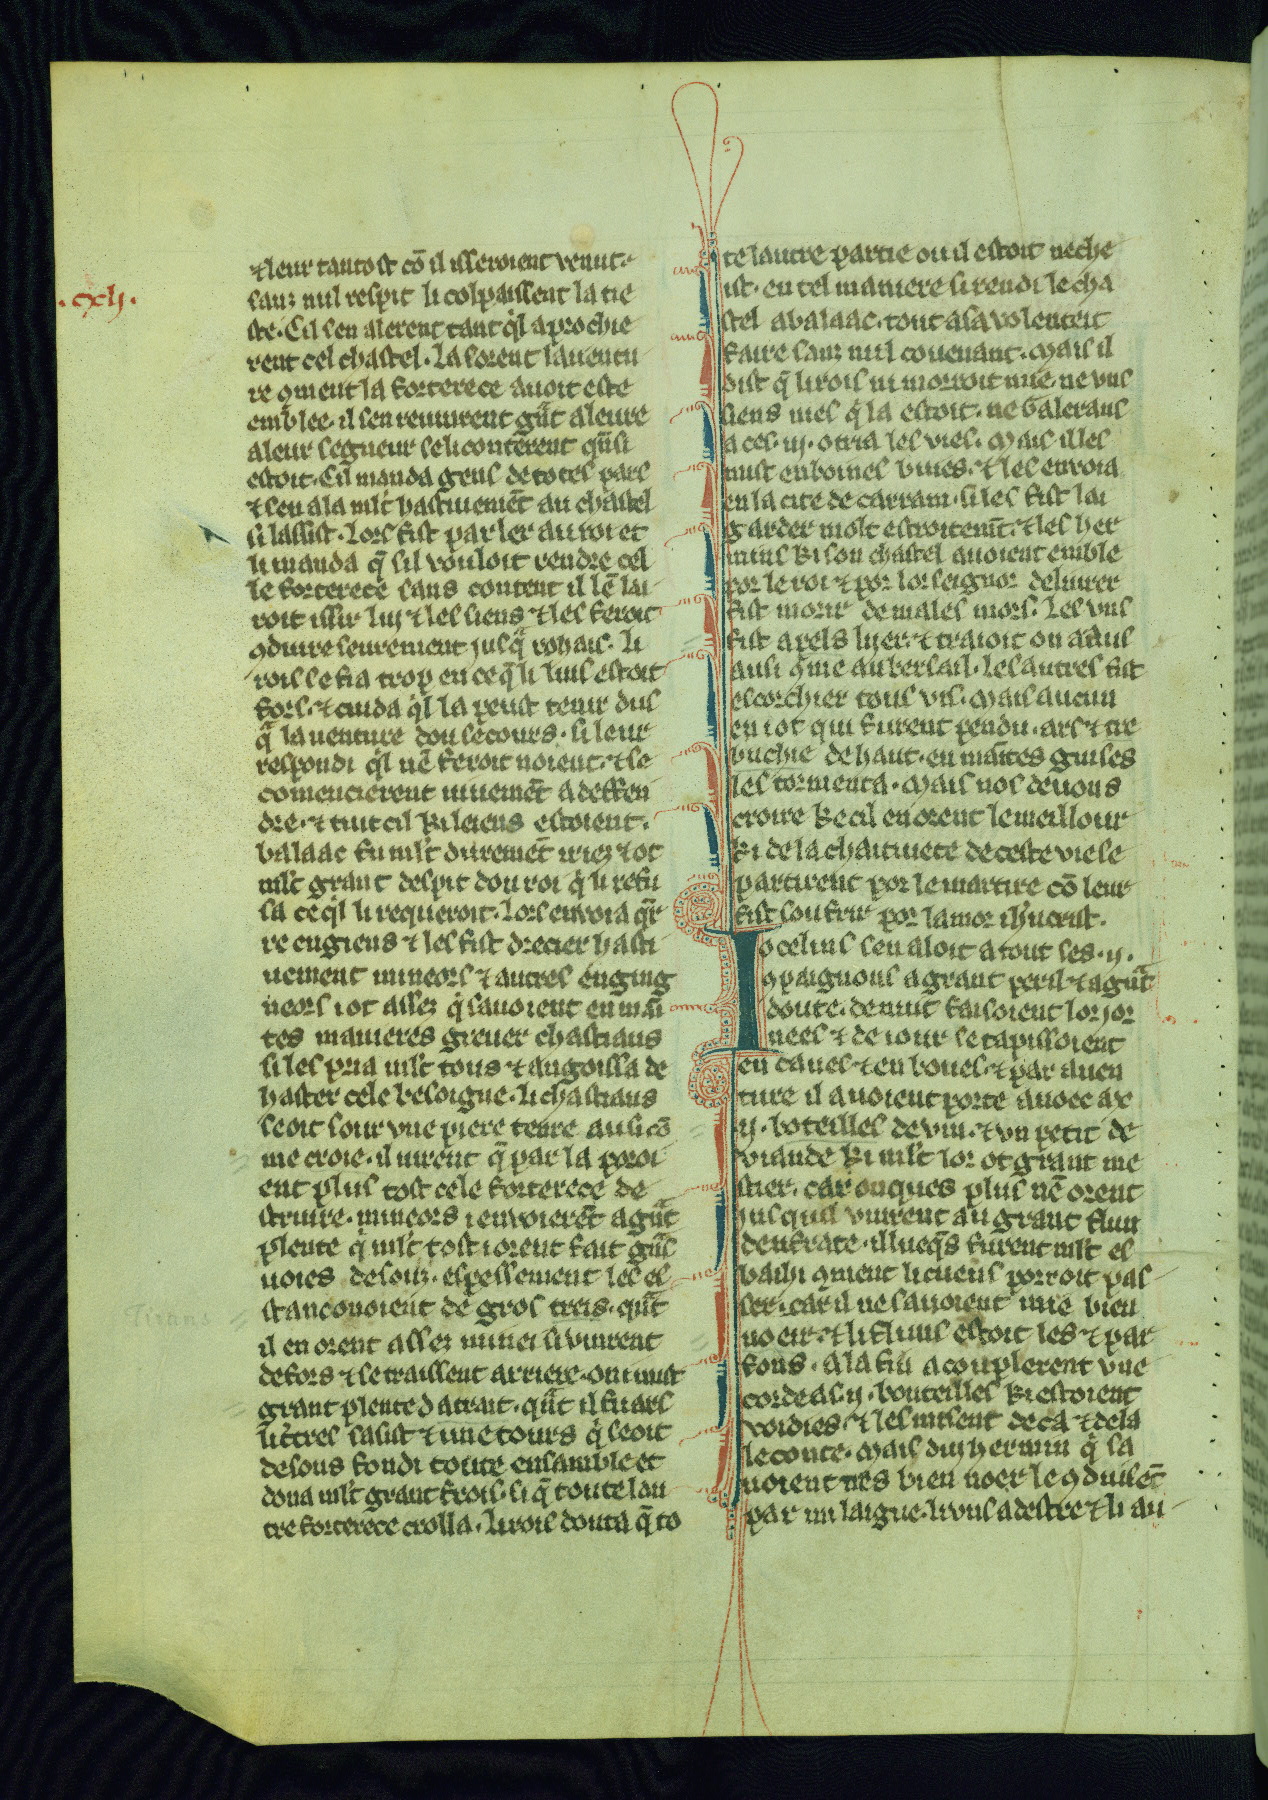 .cxlj.
⁊ leur tantost cō il isseroient venut.
sanz nul respit li colpaissent la tie
ste. Cil sen alerent tant q̇l aprochie
rent cel chastel. La sorent lauentu
re ꝯment la forterece auoit este
emblee. il sen reuinrent gūt aleure
a leur segneur se li conterent qūsi
estoit. Cil manda gens de totes pars
⁊ sen ala mlt̄ hastiuemēt au chastel
si lassist. Lors fist parler au roi et
li manda q̄ sil vouloit rendre cel
le forterece sans content il lē lai
roit issir lui ⁊ les siens ⁊ les feroit
ꝯduire seurement jusq̄ rohais. li
rois se fia trop en ce q̄ li lius estoit
fors. ⁊ cuida q̇l la peust tenir dus
q̄ la uenture dou secours. si leur
respondi q̇l nē feroit noient. ⁊ se
comencierent uiuemēt a deffen
dre. ⁊ tuit cil ki leiens estoient.
balaac fu mlt̄ duremēt iriez ⁊ ot
mlt̄ grant despit dou roi q̇ li refu
sa ce q̇l li requeroit. Lors enuoia qr̄
re engiens ⁊ les fist drecier hasti
uement mineors ⁊ autres enging
neors i ot assez q̇ sauoient en mai
tes manieres greuer chastiaus
si les pria mlt̄ tous ⁊ angoissa de
haster cele besoigne. li chastiaus
seoit sour vne piere tenre ausi cō
me croie. il uirent q̄ par la poroi
ent plus tost cele forterece de
struire. mineors i enuoierēt a gūt
plente q̇ mlt̄ tost i orent fait gūs
uoies desouz. espessement les es
stanconoient de gros treis. qūt
il en orent assez minei si vinrent
defors ⁊ se traissent arriere. on i mist
grant plente datrait. qūt il fu ars
li ctres sasist ⁊ une tours q̇ seoit
desous fondi toute ensamble et
dona mlt̄ grant frois. si q̄ toute lau
tre forterece crolla. li rois douta q̄ to
te lautre partie ou il estoit ne che
ist. en tel maniere si rendi le cha
stel a balaac. tout a sa volenteit
faire sanz nul couenant. Mais il
dist q̄ li rois ni morroit mie. ne vns
siens nies q̇ la estoit. ne Galerans
a ces .iij. otria les vies. Mais il les
mist en boines buies. ⁊ les enuoia
en la cite de carram. si les fist lai
garder molt estroitemt̄. ⁊ les her
mins ki son chastel auoient emble
por le roi ⁊ por lor seignor deliurer
fist morir de males mors. Les vns
fist a pels lijer. ⁊ traioit on a aus
ausi ꝯme au bersail. les autres fist
escorchier tous vis. Mais aucun
en i ot qui furent pendu. ars ⁊ tre
buchie de haut. en maītes guises
les tormenta. Mais nos deuons
croire ke cil en orent le meillour
ki de la chaitiuete de ceste vie se
partirent por le martire cō leur
fist soufrir por lamor ihu crist.
Iocelins sen aloit a tout ses .ij.
ꝯpaignons a grant peril ⁊ a gūt
doute. de nuit faisoient lor jor
nees ⁊ de iour se tapissoient
en caues ⁊ en boues. ⁊ par auen
ture il auoient porte auoec ax
ij. boteilles de vin. ⁊ vn petit de
viande ki mlt̄ lor ot grant me
stier. car onques plus nē orent
jusquil vinrent au grant flun
deufrate. illueq̄s furent mlt̄ es
bahi ꝯment li cuens porroit pas
ser. car il ne sauoient mie bien
noeir. ⁊ li fluns estoit les ⁊ par
fons. A la fin acouplerent vne
corde as .ij. bouteilles ki estoient
voidies. ⁊ les misent deca ⁊ dela
le conte. Mais dui hermin q̇ sa
uoient mes bien noer le ꝯduisēt
par mi laigue. li vns a destre ⁊ li au